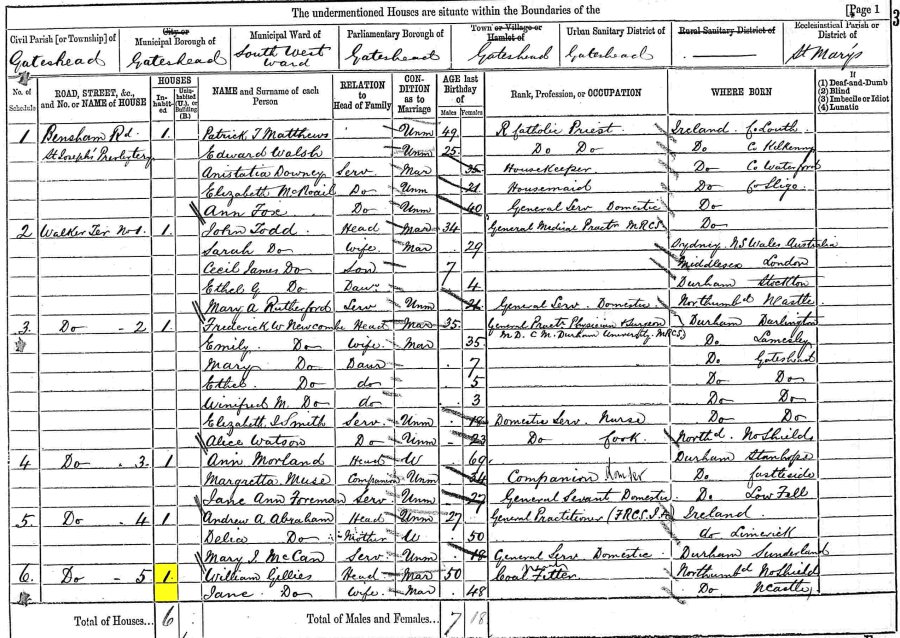 The undermentioned Houses are situate within the Boundaries of the [Page 1 3
Civil Parish [or Township] of City or Municipal Borough of Municipal Ward of Parliamentary Borough of Town or Village or Hamlet of Urban Sanitary District of Rural Sanitary District of Ecclesiastical Parish or District of
Gateshead Gateshead South West Ward Gateshead Gateshead Gateshead St Marys
No. of Schedule ROAD, STREET, &c., and No. or NAME of HOUSE HOUSES Inhabited Uninhabited (U.), or Building (B.) NAME and Surname of each Person RELATION to Head of Family CONDITION as to Marriage AGE last Birthday of Males Females Rank, Profession, or OCCUPATION WHERE BORN If (1) Deaf-and-Dumb (2) Blind (3) Imbecile or Idiot (4) Lunatic
1 Bensham Rd. 1. Patrick T Matthews Unm 49 R Catholic Priest Ireland. Co Louth
St Joseph's Presbetery Edward Walsh Unm 25 Do Do Do C Kilkenny
Anistatia Downey Serv Mar 35 Housekeeper Do Co Waterford
Elizabeth McRoail Do Unm 21 Housemaid Do Co Sligo
Ann Foxe Do Unm 40 General Serv Domestic Do
2 Walker Ter No 1. 1. John Todd Head Mar 34 General Medical Practr MRCS Do
Sarah Do Wife Mar 29 Sydney NS Wales Australia
Cecil James Do Son 7 Middlesex London
Ethel G Do Daur 4 Durham Stockton
Mary A Rutherford Serv Unm 21 General Serv. Domestic Northumbd NCastle
3. Do - 2 1 Frederick W Newcombe Head Mar 35. General Practr Physician & Surgeon Durham Darlington
Emily. Do Wife Mar 35 M.D. C.M. Durham University, MRCS Do Lamesley
Mary Do Daur 7 Do Gateshead
Ethel. Do do 5 Do Do
Winifred M. Do do 3 Do Do
Elizabeth I Smith Serv. Unm 19 Domestic Serv. Nurse Do Do
Alice Watson Do Unm 23 Do Cook Northd. No Shields
4 Do - 3. 1 Ann Morland Head W 69 Durham Stanhope
Margretta Muse Companion Unm 34 Companion Do. Castleside
Jane Ann Foreman Serv. Unm 27 General Sevant Domestic Do Low Fell
5. Do - 4 1 Andrew A Abraham Head Unm 27 General Practitioner (FRCS.I.) Ireland.
Delia Do Mother W 50 do Limerick
Mary I. McCan Serv Unm 19 General Serv Domestic Durham Sunderland
6. Do - 5 1. William Gillies Head Mar 50 Coal Fitter Northumbd No Shield
Jane. Do Wife Mar 48 Do NCastle
Total of Houses... 6 Total of Males and Females... 7 18